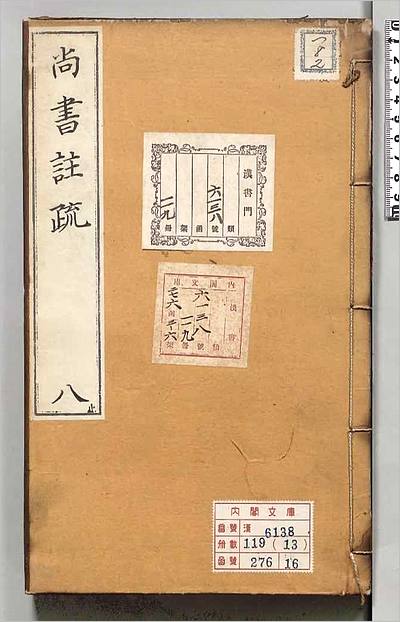 尚書註疏
八
止
漢書門
類
六一三八
號
函
架
一一九
冊
內閣文庫
漢書
六一三八
一一九
類
號
冊
架
內閣文庫
番號 漢 6138
冊數 119 (13)
函號 276 16